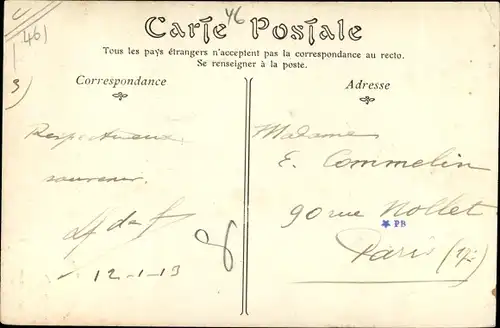 46
46
3
Carte Postale
Tous les pays étrangers n'acceptent pas la correspondance au recto.
Se renseigner à la poste.
Correspondance
Respectueux
souvenir.
12-1-13
Adresse
Madame
E. Commelin
90 rue Nollet
PB
Paris (17e)